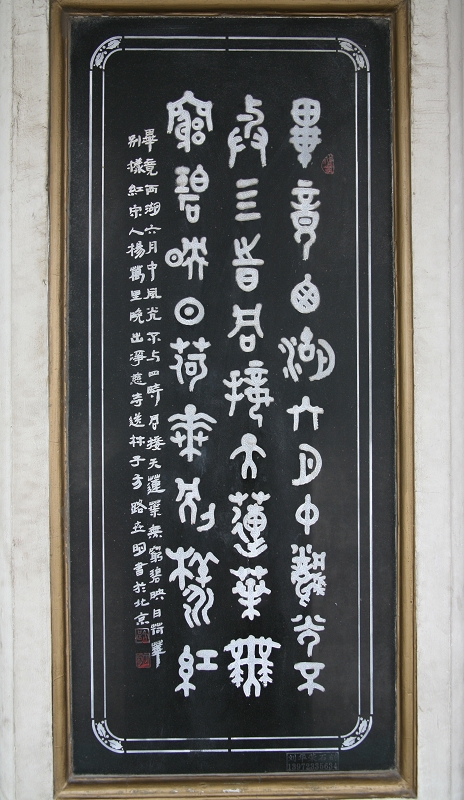 畢竟西湖六月中風光不
與四時同接天蓮葉無
窮碧映日荷華別樣紅
畢竟西湖六月中風光不与四時同接天蓮葉無窮碧映日荷華
別樣紅宋人楊萬里曉出淨慈寺送林子方路明書於北京